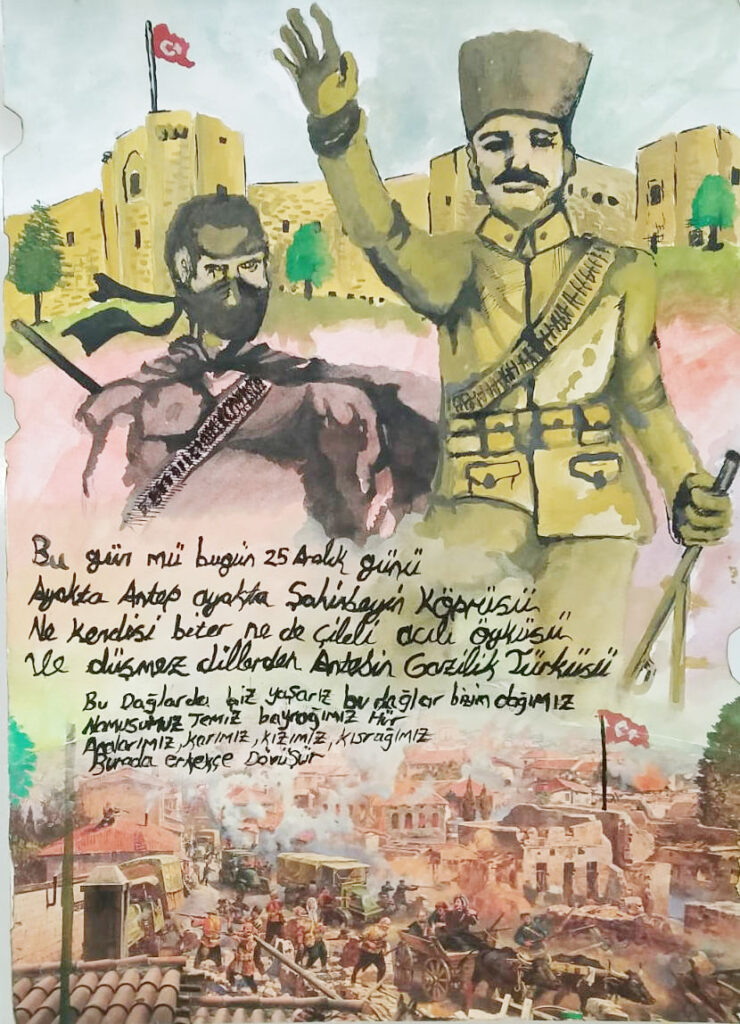 Bu gün mü bugün 25 Aralık günü
Ayakta Antep ayakta Şahinbeyin Köprüsü
Ne kendisi biter ne de çileli acılı öyküsü
Ve düşmez dillerden Antebin Gazilik Türküsü
Bu Dağlarda biz yaşarız bu dağlar bizim dağımız
Namusumuz Temiz bayrağımız Hür
Analarımız, karımız, kızımız, kısrağımız
Burada erkekçe Dövüşür